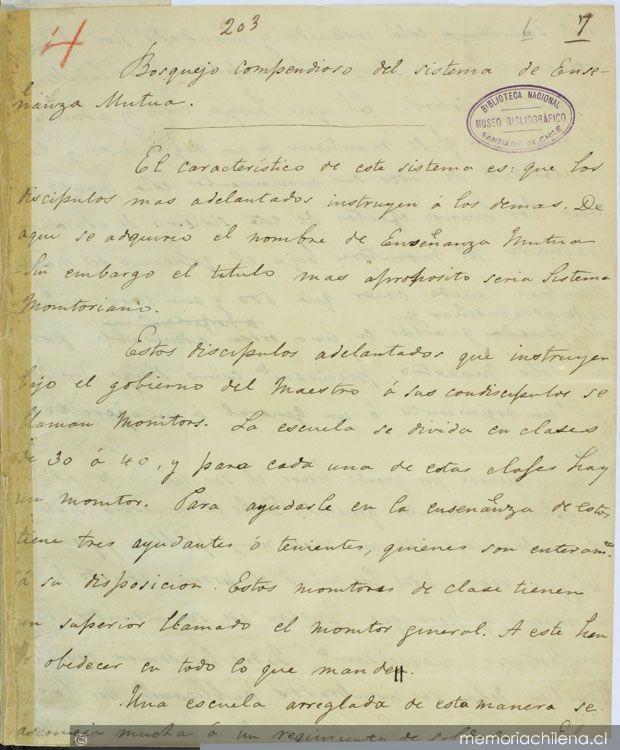 4
203
6 7
Bosquejo compendioso del sistema de Ense-
ñanza Mutua.
BIBLIOTECA NACIONAL
MUSEO BIBLIOGRÁFICO
SANTIAGO DE CHILE
El caracteristico de este sistema es: que los
discipulos mas adelantados instruyen á los demas. De
aqui se adquirió el nombre de Enseñanza Mutua
Sin embargo el titulo mas aproposito seria Sistema
Monitoriano.
Estos discipulos adelantados que instruyen
bajo el gobierno del Maestro á sus condiscipulos se
llaman Monitors. La escuela se divida en clases
de 30 á 40, y para cada una de estas clases hay
un monitor. Para ayudarle en la enseñanza de estos
tiene tres ayudantes ó tenientes, quienes son enteramte
á su disposicion. Estos monitores de clase tienen
un superior llamado el monitor general. A este han
obedecer en todo lo que mande
Una escuela arreglada de esta manera se
asemeja mucha á un regimiento de
memoriachilena.cl